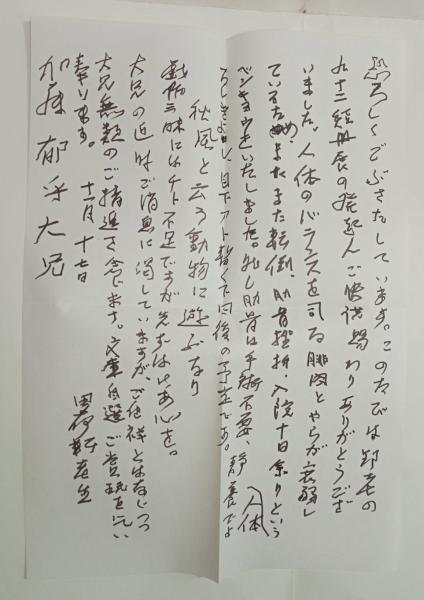 恐ろしくごぶさたしています。このたびは の
九十 短冊展の発起人ご快諾賜わりありがとうござ
いました。人体のバランスを司る腓肉とやらが衰弱し
ているため、またまた転倒、肋骨挫折・入院十日余りという
をいたしました。然し肋骨は手術不要、静養でよ
ろしきよし、目下アト暫く の予定です。
人体
秋風と云う動物に遊ぶなり
三昧にはチト不足ですが先ずは 心を。
大兄の近時ご消息に渇していますが、ご多祥とは つつ
大兄無類のご精進を念じます。文庫自選ご賞玩を乞い
奉ります。 十一月十七日
生
加藤郁乎大兄